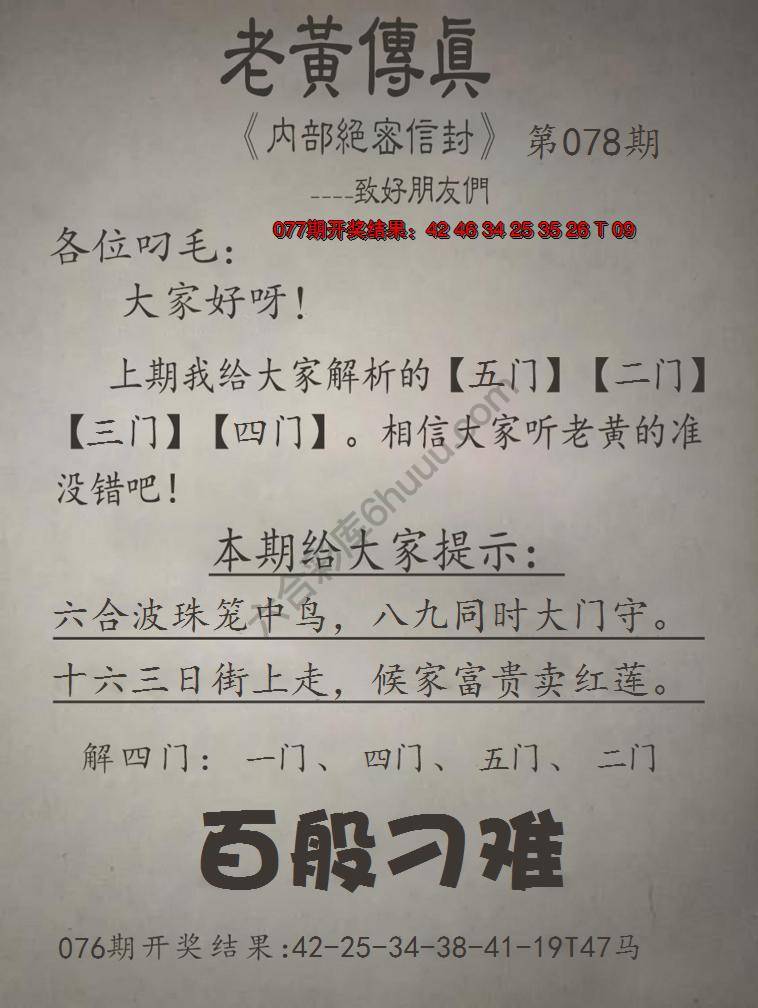 老黃傳眞
《内部絕密信封》 第078期
----致好朋友們
077期开奖结果：42 46 34 25 35 26 T 09
各位叼毛：
大家好呀！
上期我给大家解析的【五门】【二门】
【三门】【四门】。相信大家听老黄的准
没错吧！
本期给大家提示：
六合波珠笼中鸟，八九同时大门守。
十六三日街上走，候家富贵卖红莲。
解四门： 一门、 四门、 五门、 二门
百般刁难
076期开奖结果:42-25-34-38-41-19T47马
六合彩库6huuu.com